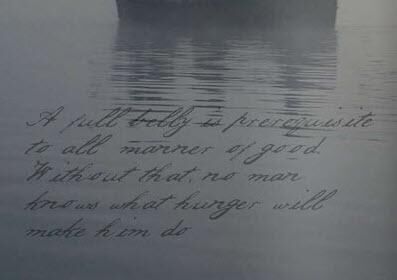 A full belly is prerequisite
to all manner of good.
Without that, no man
knows what hunger will
make him do